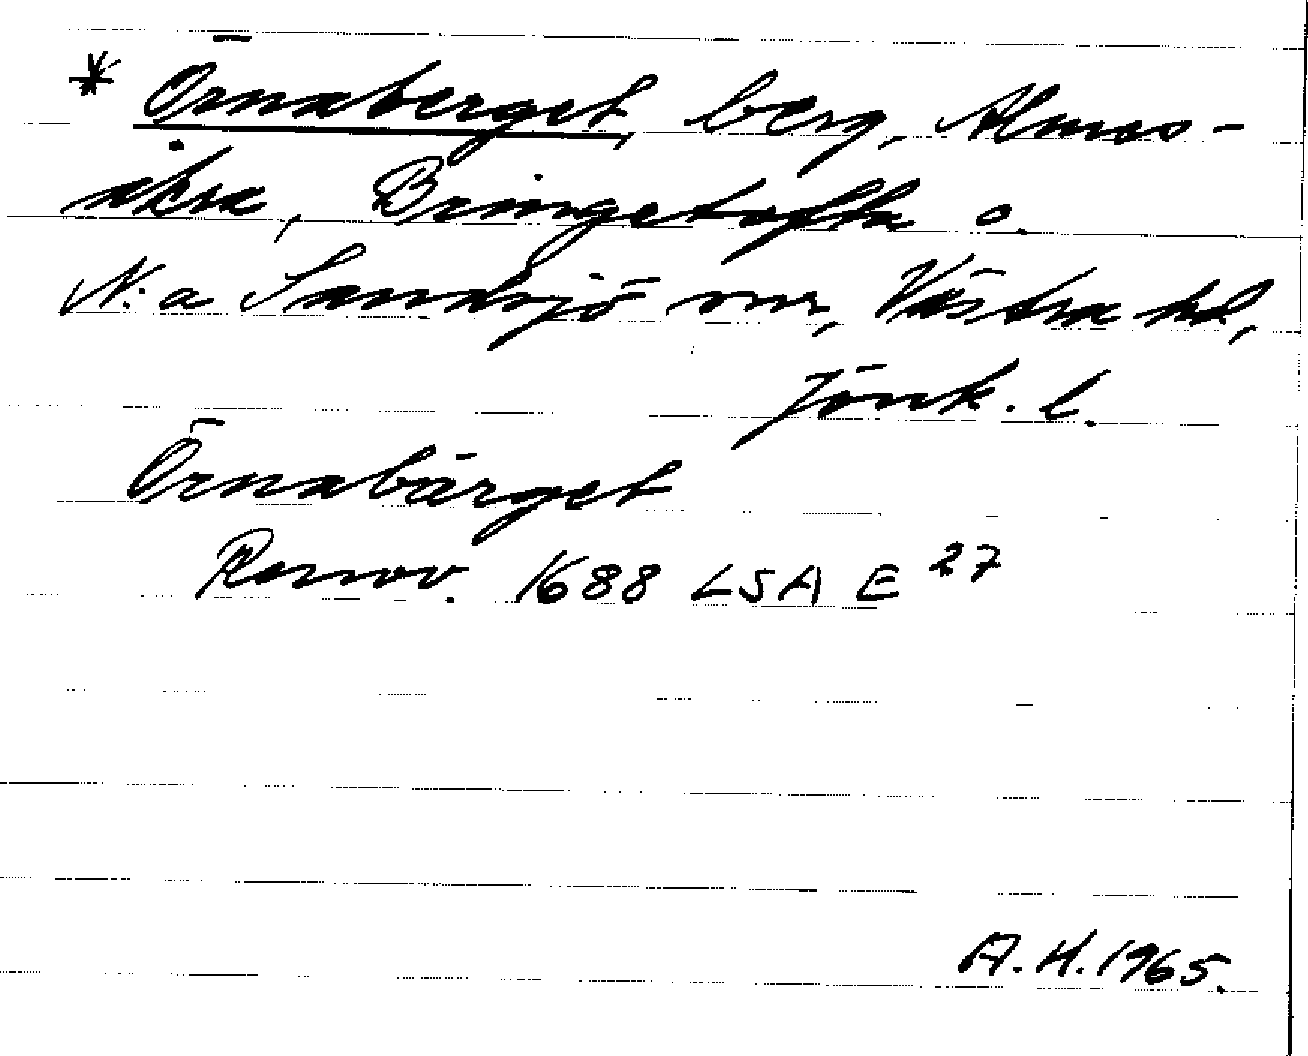 * Örnaberget, berg, Almes-
åkra, Bringetofta o.
N:a Sandsjö snr, Västra hd,
Jönk. l.
Örnabärget
Renov. 1688 LSA E 27
A.H. 1965.